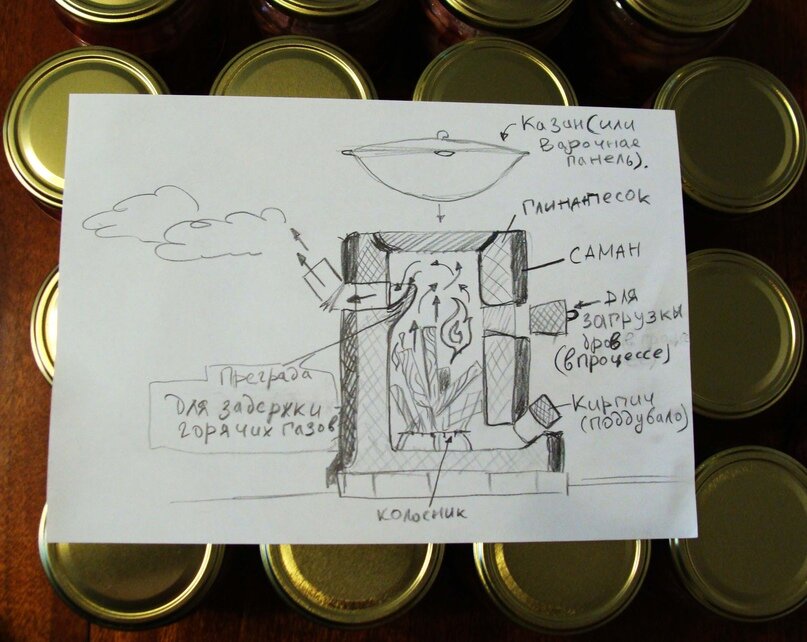 Казан(или
варочная
панель).
Глина+песок
САМАН
для
загрузки
дров
(впроцессе)
Преграда
для задержки
горячих газов
Кирпич
(поддувало)
колосник